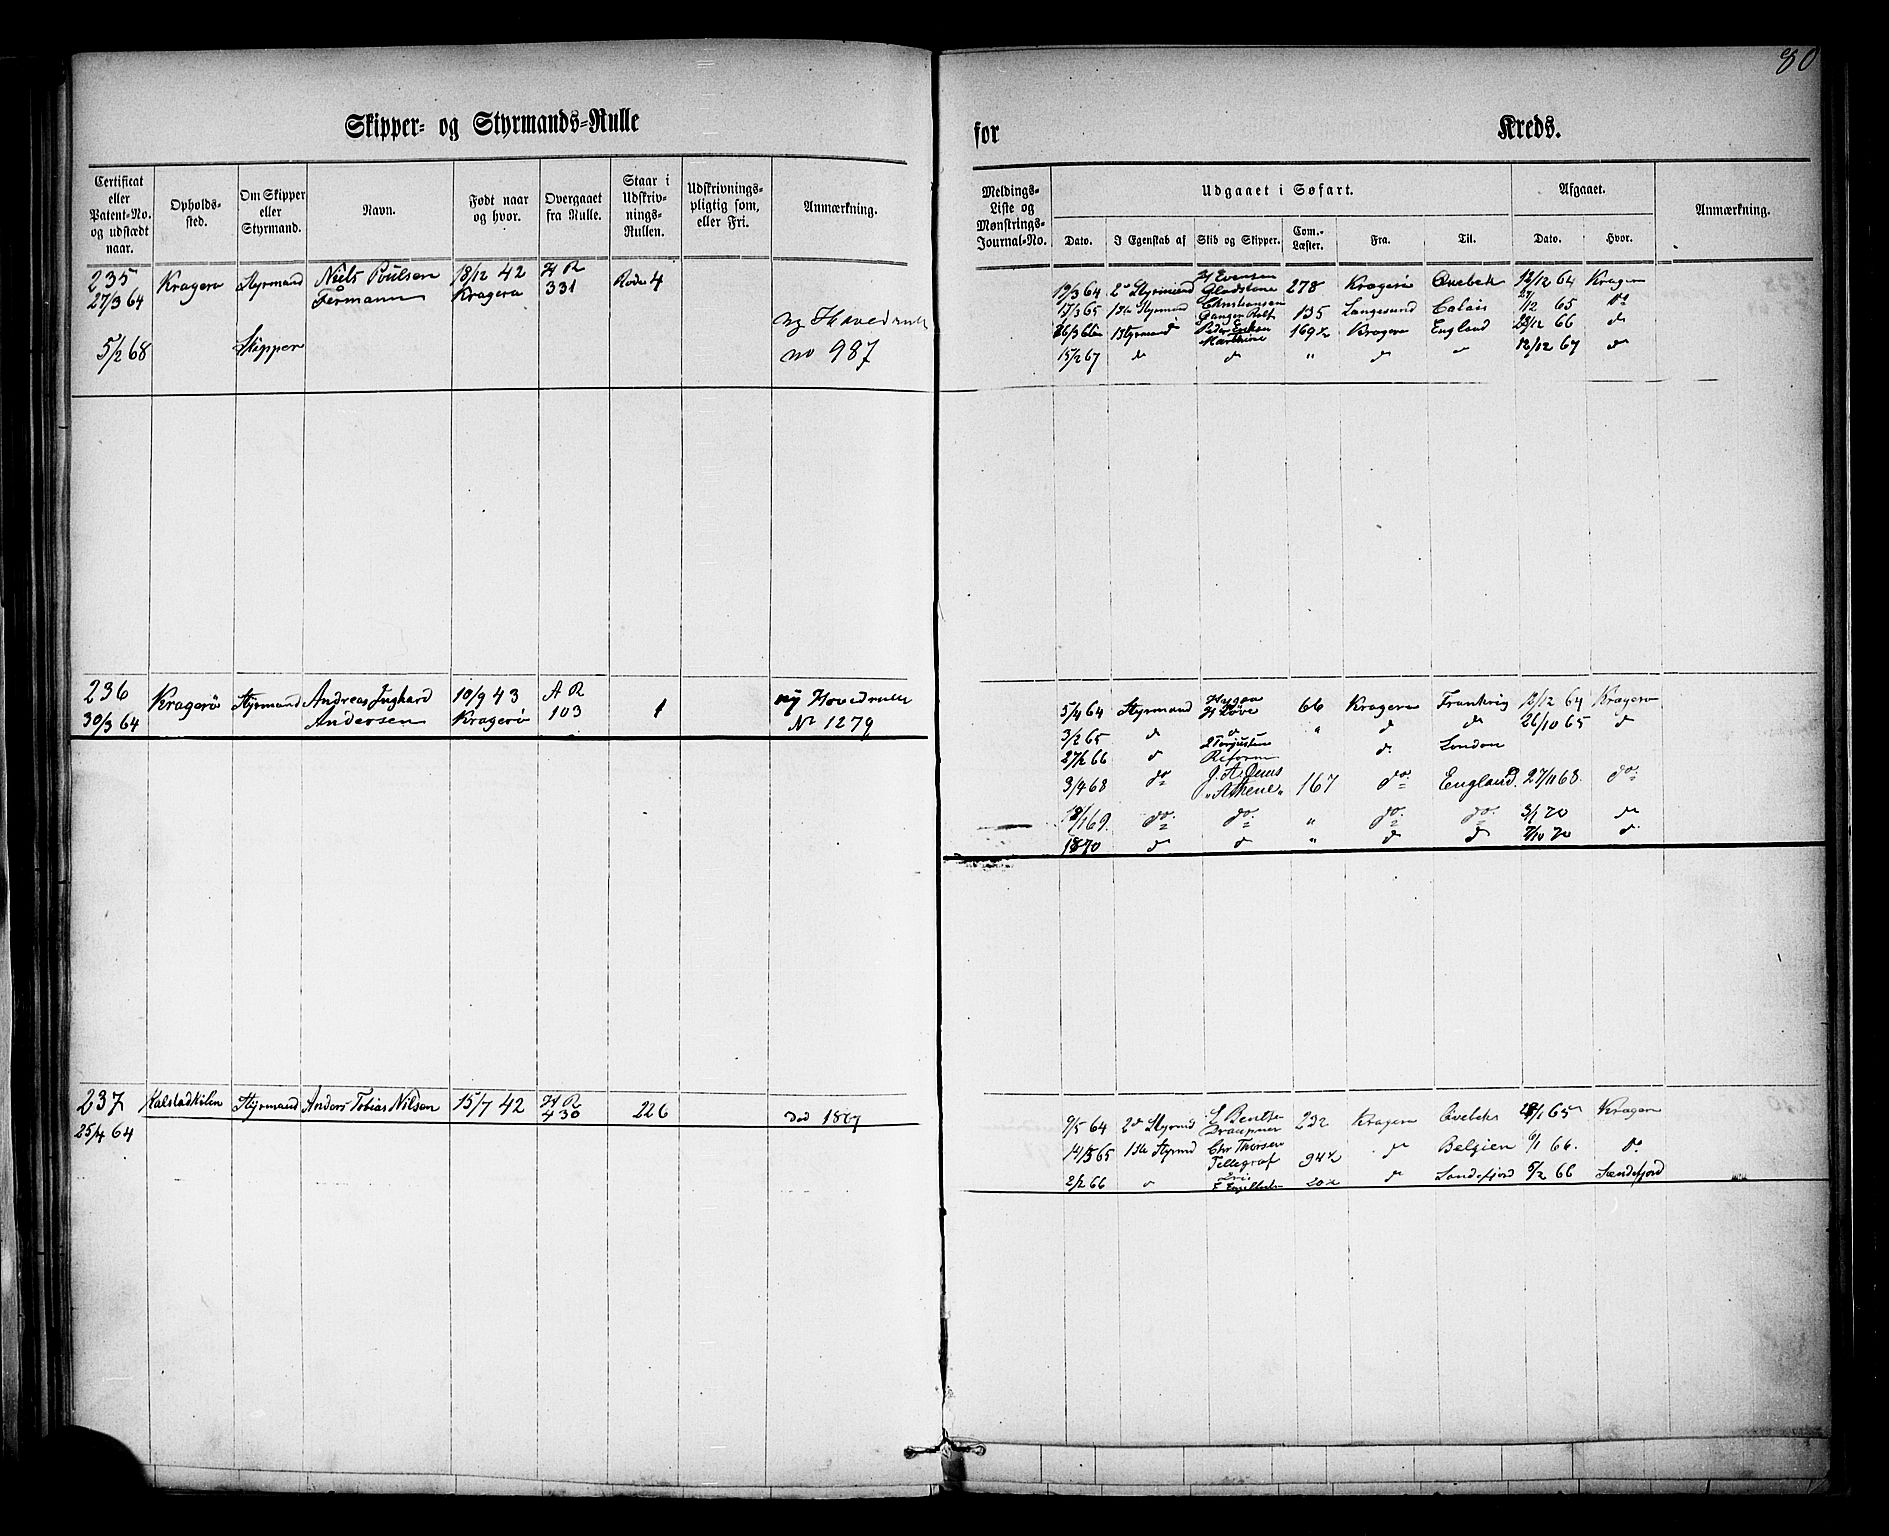 80
Skipper- og Styrmands-Rulle
for Kreds.
Certificat eller Patent-No. og udstædt naar.
Opholds-sted.
Om Skipper eller Styrmand.
Navn.
Født naar og hvor.
Overgaaet fra Rulle.
Staar i Udskriv-nings-Rullen.
Udskrivnings-pligtig som, eller Fri.
Anmærkning.
Meldings-Liste og Mønstrings-Journal-No.
Udgaaet i Søfart.
Afgaaet.
Anmærkning.
Dato. I Egenskab af Skib og Skipper. Com.-Læster. Fra. Til. Dato. Hvor.
235 Kragerø Styrmand Niels Poulsen 18/12 42 H R Rode 4
27/3 64 Fermann Kragerø 331
ny Hovedrulle
5/2 68 Skipper no 987
H Evensen
19/3 64 2d Styrmand Gladstone 278 Kragerø 12/12 64 Kragerø
Christiansen
17/3 65 1ste Styrmand Ganger Rolf 135 Langesund Calais /12 65 do
26/3 66 1 Styrmand Peder 169½ Kragerø England /12 66 do
15/2 67 do do " do 12/12 67 do
236 Kragerø Styrmand Andreas Inghard 10/9 43 A R 1 ny Hovedrulle
30/3 64 Andersen Kragerø 103 No 1279
5/4 64 Styrmand H Løve 66 Kragerø Frankrig 12/12 64 Kragerø
3/2 65 do do " do do 26/10 65 do
27/2 66 do Reform do London
3/4 68 do J. A. "Athene" 167 do England. 27/11 68. do
/1 69. do do " do do 3/1 70 do
1870 do do " do do 7/10 70 do
237 Kalstadkilen Styrmand Anders Tobias Nilsen 15/7 42 H R 226 Død 1867
25/4 64 430
9/5 64 2d Styrmd Bentsen Draupner 232 Kragerø /1 65 Kragerø
14/3 65 1ste Styrmd Chr Thorsen Tellegraf 94½ do Belgien 6/1 66. do
2/2 66 do do Sandefjord /2 66 Sandefjord